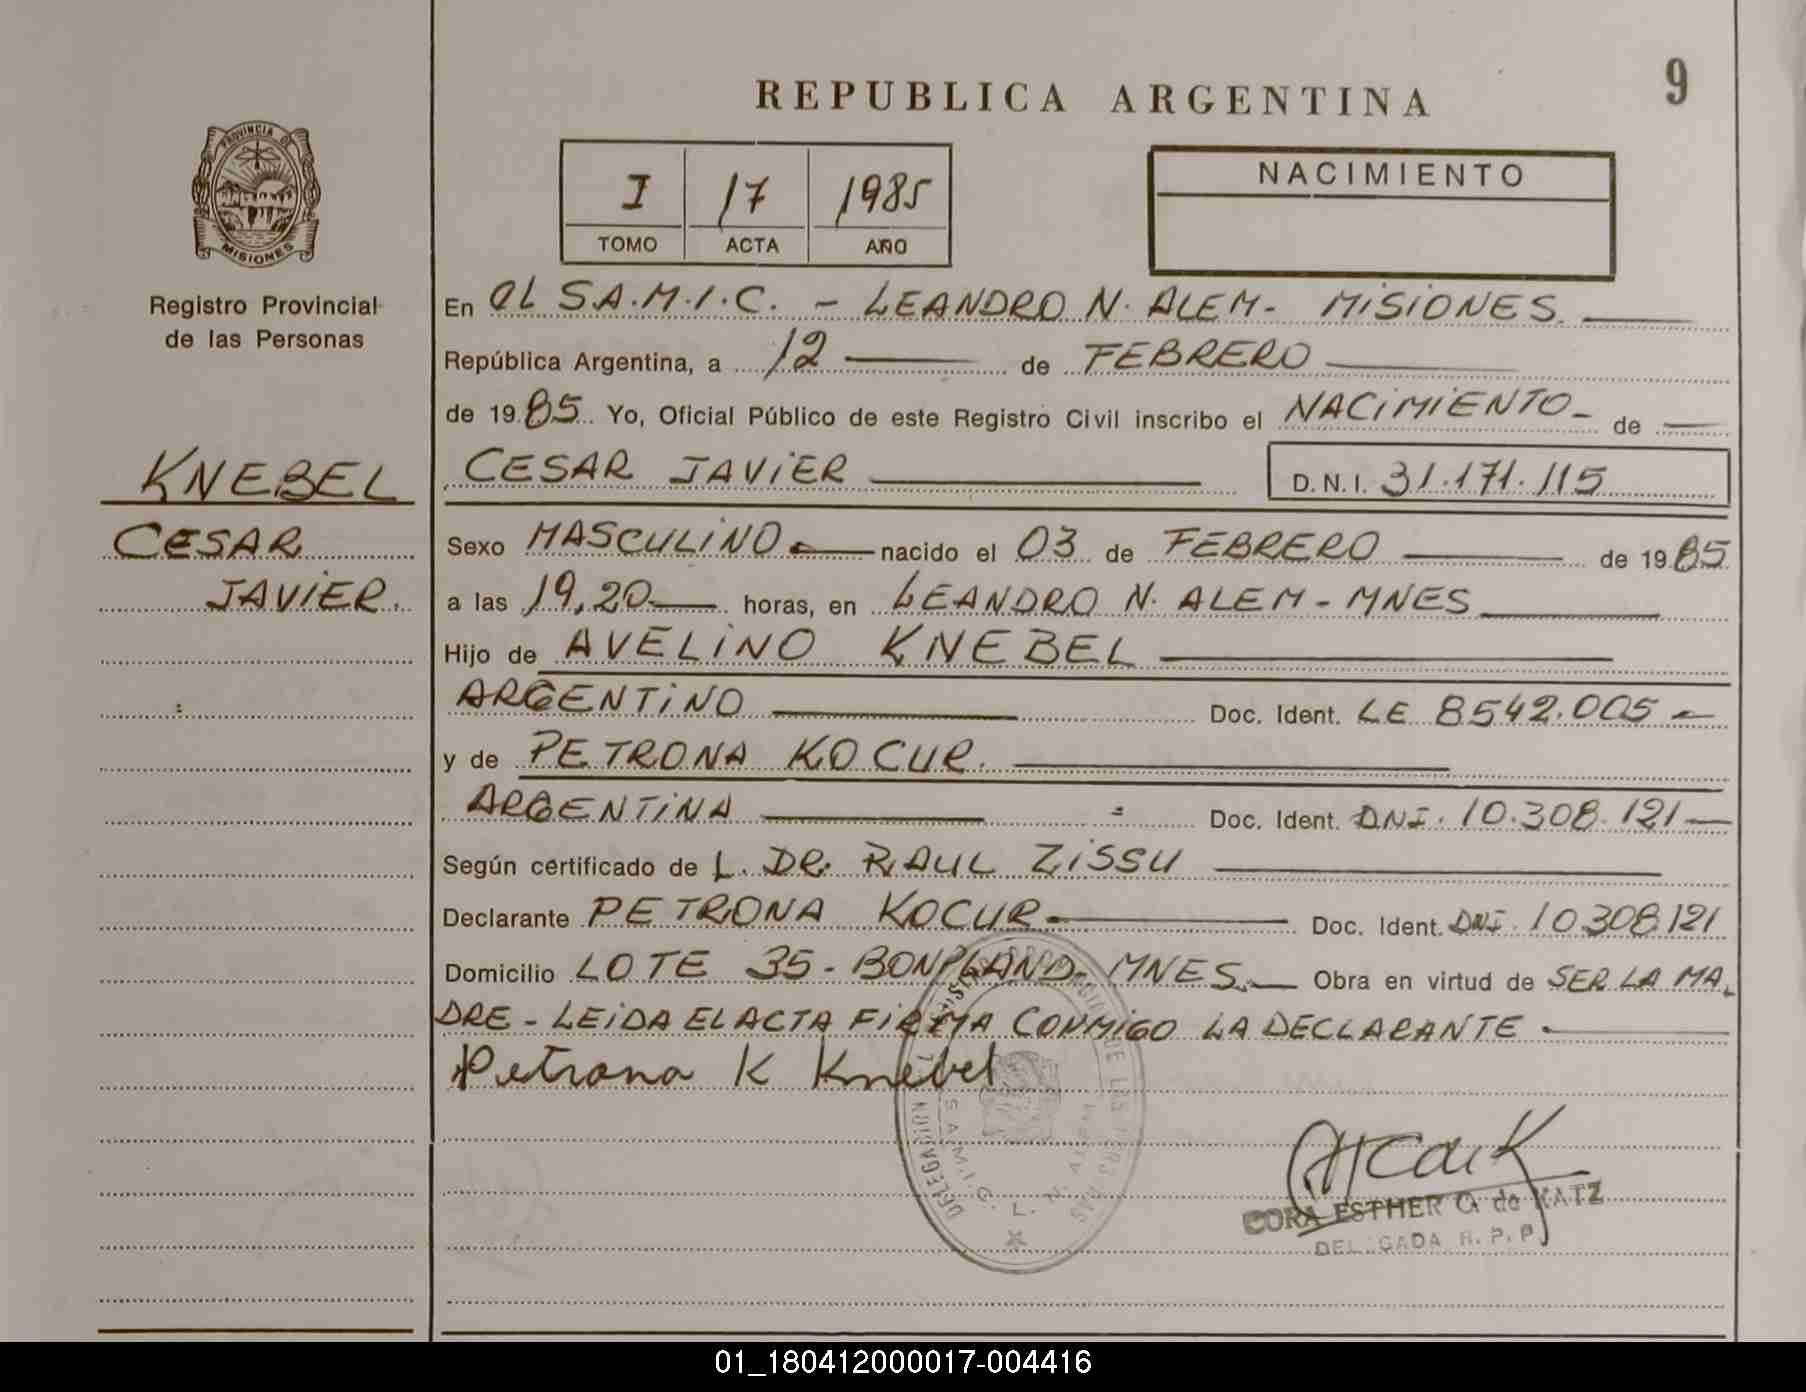 REPUBLICA ARGENTINA
9
PROVINCIA DE
MISIONES
Registro Provincial
de las Personas
I 17 1985
TOMO ACTA AÑO
NACIMIENTO
En EL S.A.M.I.C. - LEANDRO N. ALEM - MISIONES.
República Argentina, a 12 de FEBRERO
de 1985. Yo, Oficial Público de este Registro Civil inscribo el NACIMIENTO - de
KNEBEL
CESAR JAVIER D.N.I. 31.171.115
CESAR
JAVIER.
Sexo MASCULINO nacido el 03 de FEBRERO de 1985
a las 19,20 horas, en LEANDRO N. ALEM - MNES
Hijo de AVELINO KNEBEL
ARGENTINO Doc. Ident. LE 8542.005
y de PETRONA KOCUR.
ARGENTINA Doc. Ident. DNI. 10.308.121
Según certificado de L. DR. RAUL ZISSU
Declarante PETRONA KOCUR Doc. Ident. DNI. 10.308.121
Domicilio LOTE 35 - BONPLAND - MNES. Obra en virtud de SER LA MA
DRE - LEIDA EL ACTA FIRMA CONMIGO LA DECLARANTE
Petrona K Knebel
DELEGACION
S.A.M.I.C. L. N. ALEM
CORA ESTHER G. de KATZ
DELEGADA R.P.P.
01_180412000017-004416